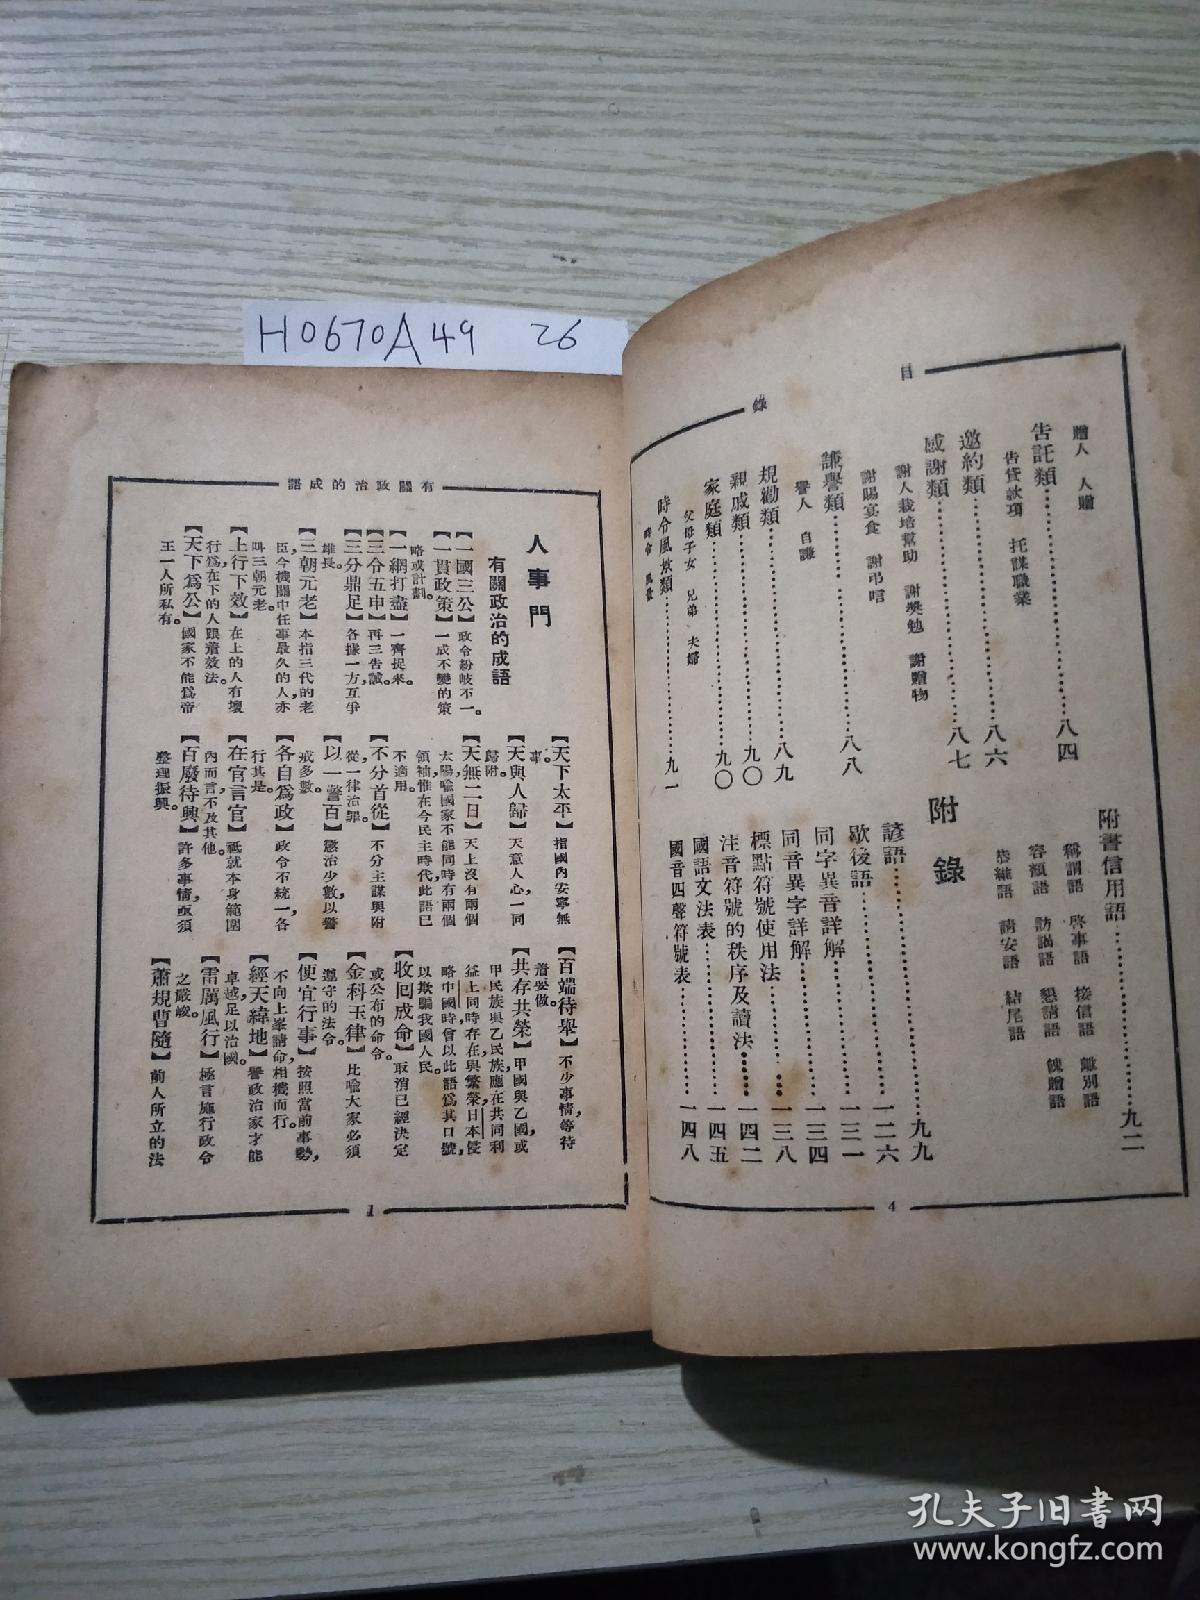 H0670A49 26
目
錄
贈人 人贈
告託類……八四
告貸款項 託謀職業
邀約類……八六
感謝類……八七
謝人栽培幫助 謝獎勉 謝贈物
謝賜宴食 謝弔唁
謙譽類……八八
譽人 自謙
規勸類……八九
親戚類……九〇
家庭類……九〇
父母子女 兄弟 夫婦
時令風景類……九一
時令 風景
附書信用語……九二
稱謂語 啓事語 接信語 離別語
容頌語 訪謁語 懇請語 餽贈語
恭維語 請安語 結尾語
附錄
諺語……九九
歇後語……一二六
同字異音詳解……一三一
同音異字詳解……一三四
標點符號使用法……一三八
注音符號的秩序及讀法……一四二
國語文法表……一四五
國音四聲符號表……一四八
4
有關政治的成語
人事門
有關政治的成語
【一國三公】政令紛岐不一。
【一貫政策】一成不變的策
略或計劃。
【一網打盡】一齊捉來。
【三令五申】再三告誡。
【三分鼎足】各據一方,互爭
雄長。
【三朝元老】本指三代的老
臣,今機關中任事最久的人,亦
叫三朝元老。
【上行下效】在上的人有壞
行爲在下的人跟着效法。
【天下爲公】國家不能爲帝
王一人所私有。
【天下太平】指國內安寧無
事。
【天與人歸】天意人心,一同
歸附。
【天無二日】天上沒有兩個
太陽,喻國家不能同時有兩個
領袖,惟在今民主時代此語已
不適用。
【不分首從】不分主謀與附
從,一律治罪。
【以一警百】懲治少數,以警
戒多數。
【各自爲政】政令不統一,各
行其是。
【在官言官】祇就本身範圍
內而言,不及其他。
【百廢待興】許多事情,亟須
整理振興。
【百端待舉】不少事情,等待
着要做。
【共存共榮】甲國與乙國,或
甲民族與乙民族,應在共同利
益上同時存在與繁榮,日本侵
略中國時曾以此語爲其口號,
以欺騙我國人民。
【收囘成命】取消已經決定
或公布的命令。
【金科玉律】比喻大家必須
遵守的法令。
【便宜行事】按照當前事勢,
不向上峯請命,相機而行。
【經天緯地】譽政治家才能
卓越,足以治國。
【雷厲風行】極言施行政令
之嚴峻。
【蕭規曹隨】前人所立的法
1
孔夫子旧书网
www.kongfz.com